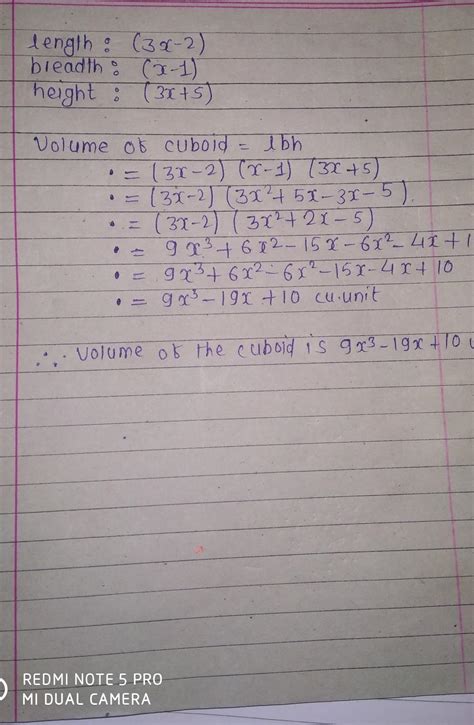 length : (3x-2)
breadth : (x-1)
height : (3x+5)
Volume of cuboid = lbh
• = (3x-2) (x-1) (3x+5)
• = (3x-2) (3x²+5x-3x-5)
• = (3x-2) (3x²+2x-5)
• = 9x³+6x²-15x-6x²-4x+1
• = 9x³+6x²-6x²-15x-4x+10
• = 9x³-19x+10 cu.unit
∴ Volume of the cuboid is 9x³-19x+10
REDMI NOTE 5 PRO
MI DUAL CAMERA